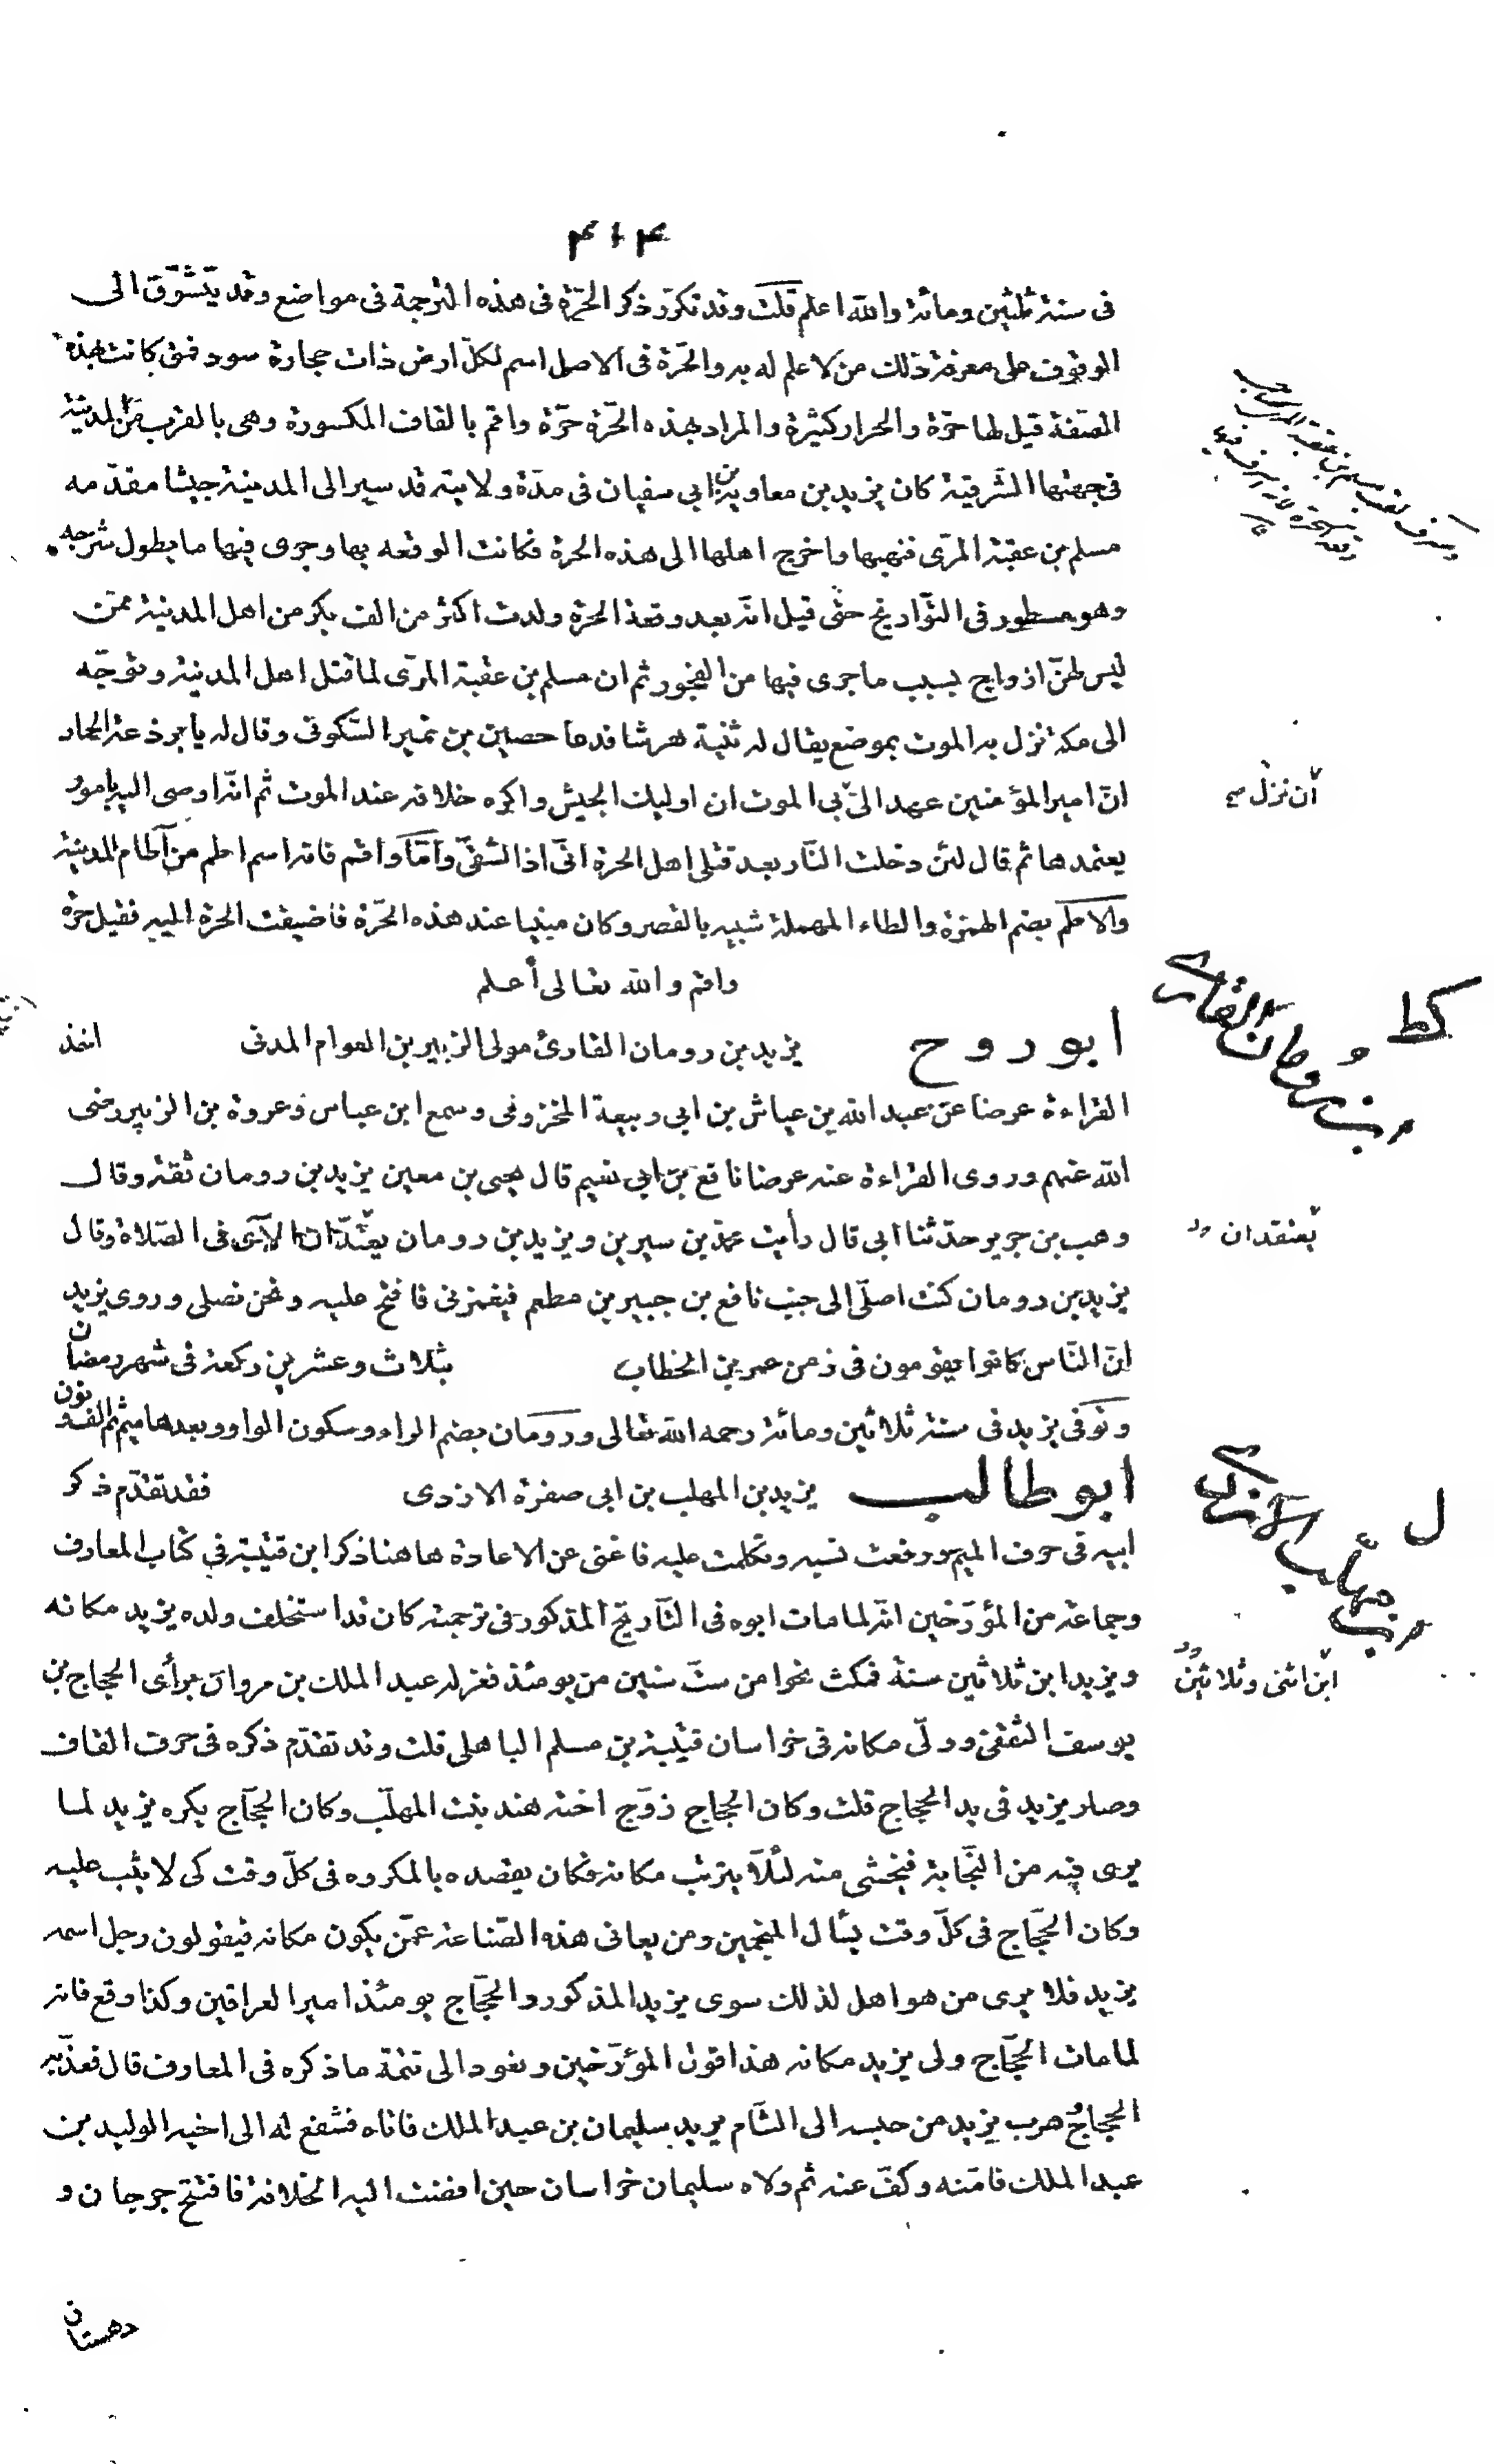 ۴۱۴
فى سنة ثلثين ومائة والله اعلم قلت وقد تكرّر ذكر الحرّة فى هذه الترجمة فى مواضع وقد يتشوّق الى
الوقوف على معرفة ذلك من لا علم له به والحرّة فى الاصل اسم لكلّ ارض ذات حجارة سود فمتى كانت بهذه
الصّفة قيل لها حرّة والحرار كثيرة والمراد بهذه الحرّة حرّة واقم بالقاف المكسورة وهى بالقرب من المدينة
فى جهتها الشّرقية كان يزيد بن معاوية بن ابى سفيان فى مدّة ولايته قد سير الى المدينة جيشا مقدّمه
مسلم بن عقبة المرّى فنهبها واخرج اهلها الى هذه الحرة فكانت الوقعه بها وجرى فيها ما يطول شرحه
وهو مسطور فى التّواريخ حتّى قيل انّه بعد وقعة الحرّة ولدت اكثر من الف بكر من اهل المدينة ممّن
ليس لهنّ ازواج بسبب ما جرى فيها من الفجور ثم ان مسلم بن عقبة المرّى لما قتل اهل المدينة وتوجّه
الى مكة نزل به الموت بموضع يقال له ثنية هرشا فدعا حصين بن نمير السّكونى وقال له يا برذعة الحمار
انّ امير المؤمنين عهد الىّ بى الموت ان اوليك الجيش واكره خلافه عند الموت ثم انّه اوصى اليه بامور
ان نزل صح
يعتمدها ثم قال لئن دخلت النّار بعد قتلى اهل الحرة انّى اذا لشقىّ وامّا واقم فانه اسم اطم من آطام المدينة
والاطم بضم الهمزة والطاء المهملة شبيه بالقصر وكان مبنيا عند هذه الحرّة فاضيفت الحرة اليه فقيل حرة
واقم والله تعالى أعلم
كط و
ابن رومان القارى
ابو روح يزيد بن رومان القارئ مولى الزبير بن العوام المدنى اخذ
القراءة عرضا عن عبد الله بن عياش بن ابى ربيعة المخزومى وسمع ابن عباس وعروة بن الزبير رضى
الله عنهم وروى القراءة عنه عرضا نافع بن ابى نعيم قال يحيى بن معين يزيد بن رومان ثقة وقال
وهب بن جرير حدّثنا ابى قال رأيت محمّد بن سيرين ويزيد بن رومان يعدّان الآى فى الصّلاة وقال
يعتقدان
يزيد بن رومان كنت اصلّى الى جنب نافع بن جبير بن مطعم فيغمزنى فافتح عليه ونحن نصلى وروى يزيد
انّ النّاس كانوا يقومون فى زمن عمر بن الخطاب بثلاث وعشرين ركعة فى شهر رمضان
وتوفى يزيد فى سنة ثلاثين ومائة رحمه الله تعالى ورومان بضم الراء وسكون الواو وبعدها ميم ثم الف ونون
ل
ابن مهلّب الازدى
ابو طالب يزيد بن المهلب بن ابى صفرة الازدى فقد تقدّم ذكر
ابيه فى حرف الميم ورفعت نسبه وتكلمت عليه فاغنى عن الاعادة هاهنا ذكر ابن قتيبة فى كتاب المعارف
وجماعة من المؤرّخين انّه لما مات ابوه فى التّاريخ المذكور فى ترجمته كان قد استخلف ولده يزيد مكانه
ويزيد ابن ثلاثين سنة فمكث نحوا من ستّ سنين من يومئذ فعزله عبد الملك بن مروان برأى الحجاج بن
ابن اثنى وثلاثين
يوسف الثقفى وولّى مكانه فى خراسان قتيبة بن مسلم الباهلى قلت وقد تقدّم ذكره فى حرف القاف
وصار يزيد فى يد الحجاج قلت وكان الحجاج زوّج اخته هند بنت المهلّب وكان الحجّاج يكره يزيد لما
يرى فيه من النّجابة فيخشى منه لئلّا يترتب مكانه فكان يقصده بالمكروه فى كلّ وقت كى لا يثب عليه
وكان الحجّاج فى كلّ وقت يسأل المنجمين ومن يعانى هذه الصّناعة عمّن يكون مكانه فيقولون رجل اسمه
يزيد فلا يرى من هو اهل لذلك سوى يزيد المذكور والحجّاج يومئذ امير العراقين وكذا وقع فانه
لما مات الحجّاج ولى يزيد مكانه هذا قول المؤرّخين ونعود الى تتمة ما ذكره فى المعارف قال فعذّبه
الحجاج هرب يزيد من حبسه الى الشّام يريد سليمان بن عبد الملك فاتاه فشفع له الى اخيه الوليد بن
عبد الملك فامّنه وكفّ عنه ثم ولاه سليمان خراسان حين افضت اليه الخلافة فافتتح جرجان و
دهستان